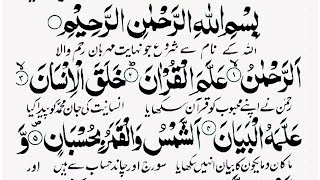 بِسْمِ اللّٰهِ الرَّحْمٰنِ الرَّحِیْمِ
اللہ کے نام سے شروع جو نہایت مہربان رحم والا
اَلرَّحْمٰنُ ۙ﴿۱﴾ عَلَّمَ الْقُرْاٰنَ ؕ﴿۲﴾ خَلَقَ الْاِنْسَانَ ۙ﴿۳﴾
رحمٰن نے اپنے محبوب کو قرآن سکھایا انسانیت کی جان محمد کو پیدا کیا
عَلَّمَهُ الْبَیَانَ ﴿۴﴾ اَلشَّمْسُ وَ الْقَمَرُ بِحُسْبَانٍ ﴿۵﴾ وَّ
ما کان و ما یکون کا بیان انہیں سکھایا سورج اور چاند حساب سے ہیں اور